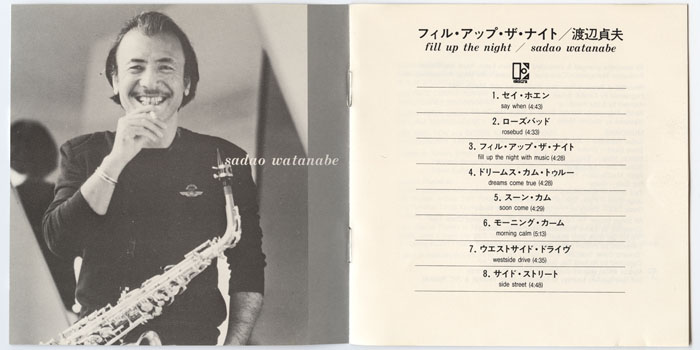 sadao watanabe
フィル・アップ・ザ・ナイト／渡辺貞夫
fill up the night / sadao watanabe
elektra
1. セイ・ホエン
say when (4:43)
2. ローズバッド
rosebud (4:33)
3. フィル・アップ・ザ・ナイト
fill up the night with music (4:28)
4. ドリームス・カム・トゥルー
dreams come true (4:28)
5. スーン・カム
soon come (4:29)
6. モーニング・カーム
morning calm (5:13)
7. ウエストサイド・ドライヴ
westside drive (4:35)
8. サイド・ストリート
side street (4:48)